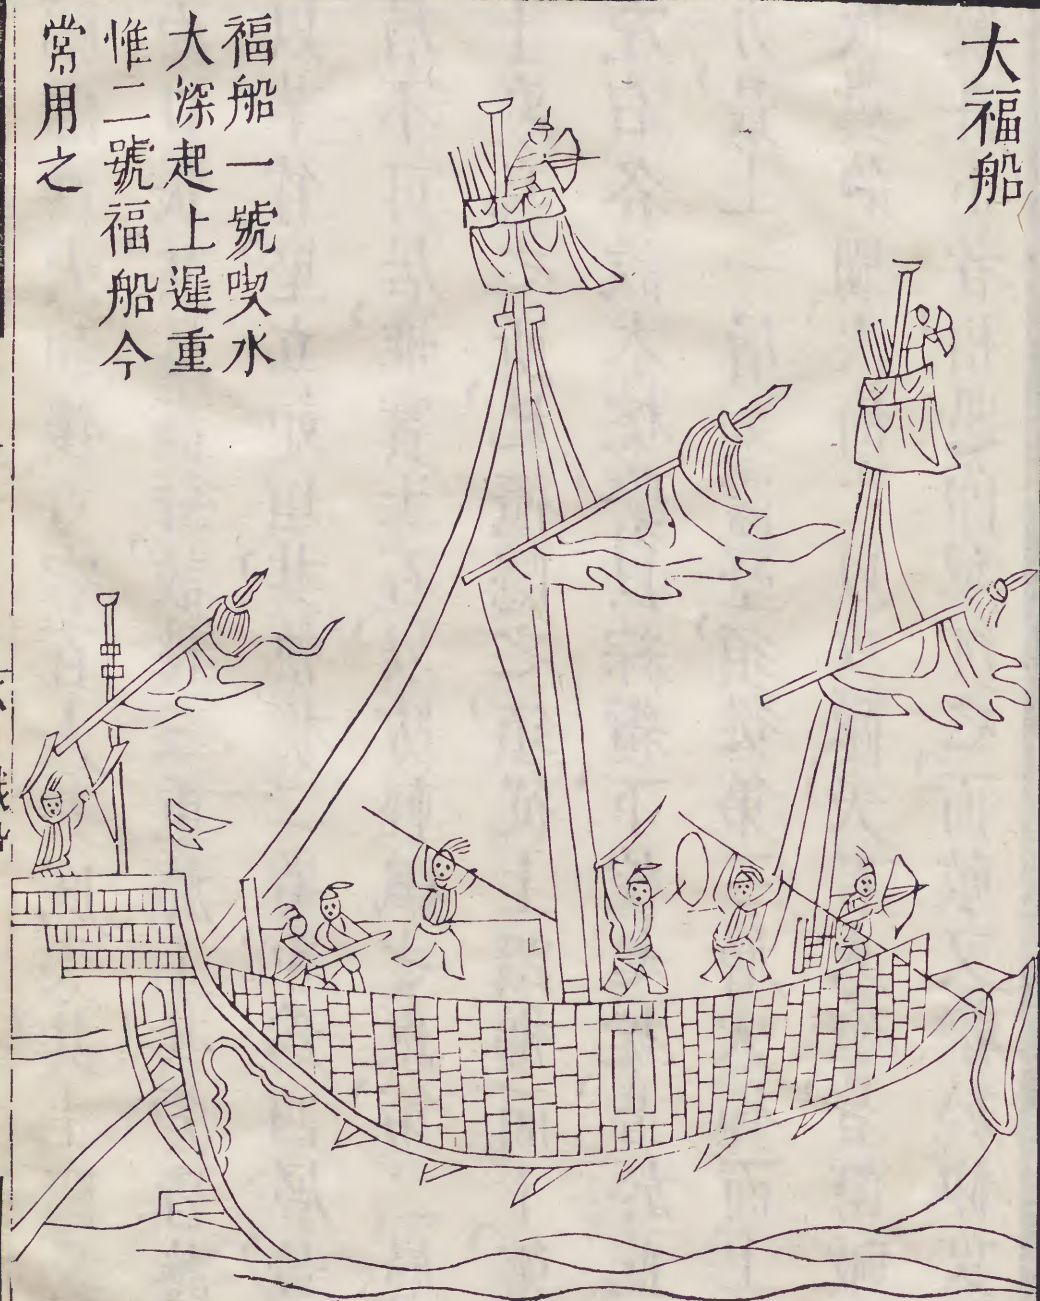 大福船
福船一號喫水
大深起上遲重
惟二號福船今
常用之